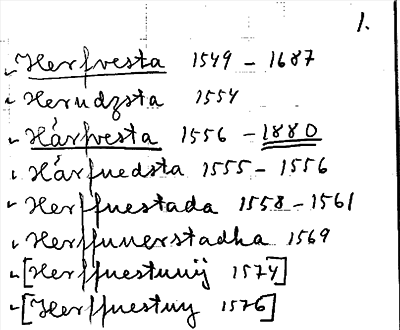 1.
Herfvesta 1549 - 1687
Herudzsta 1554
Hárfvesta 1556 - 1880
Hárfuedsta 1555 - 1556
Herffuestada 1558 - 1561
Herffunerstadha 1569
[Herffuestunij 1574]
[Herffuestuy 1576]